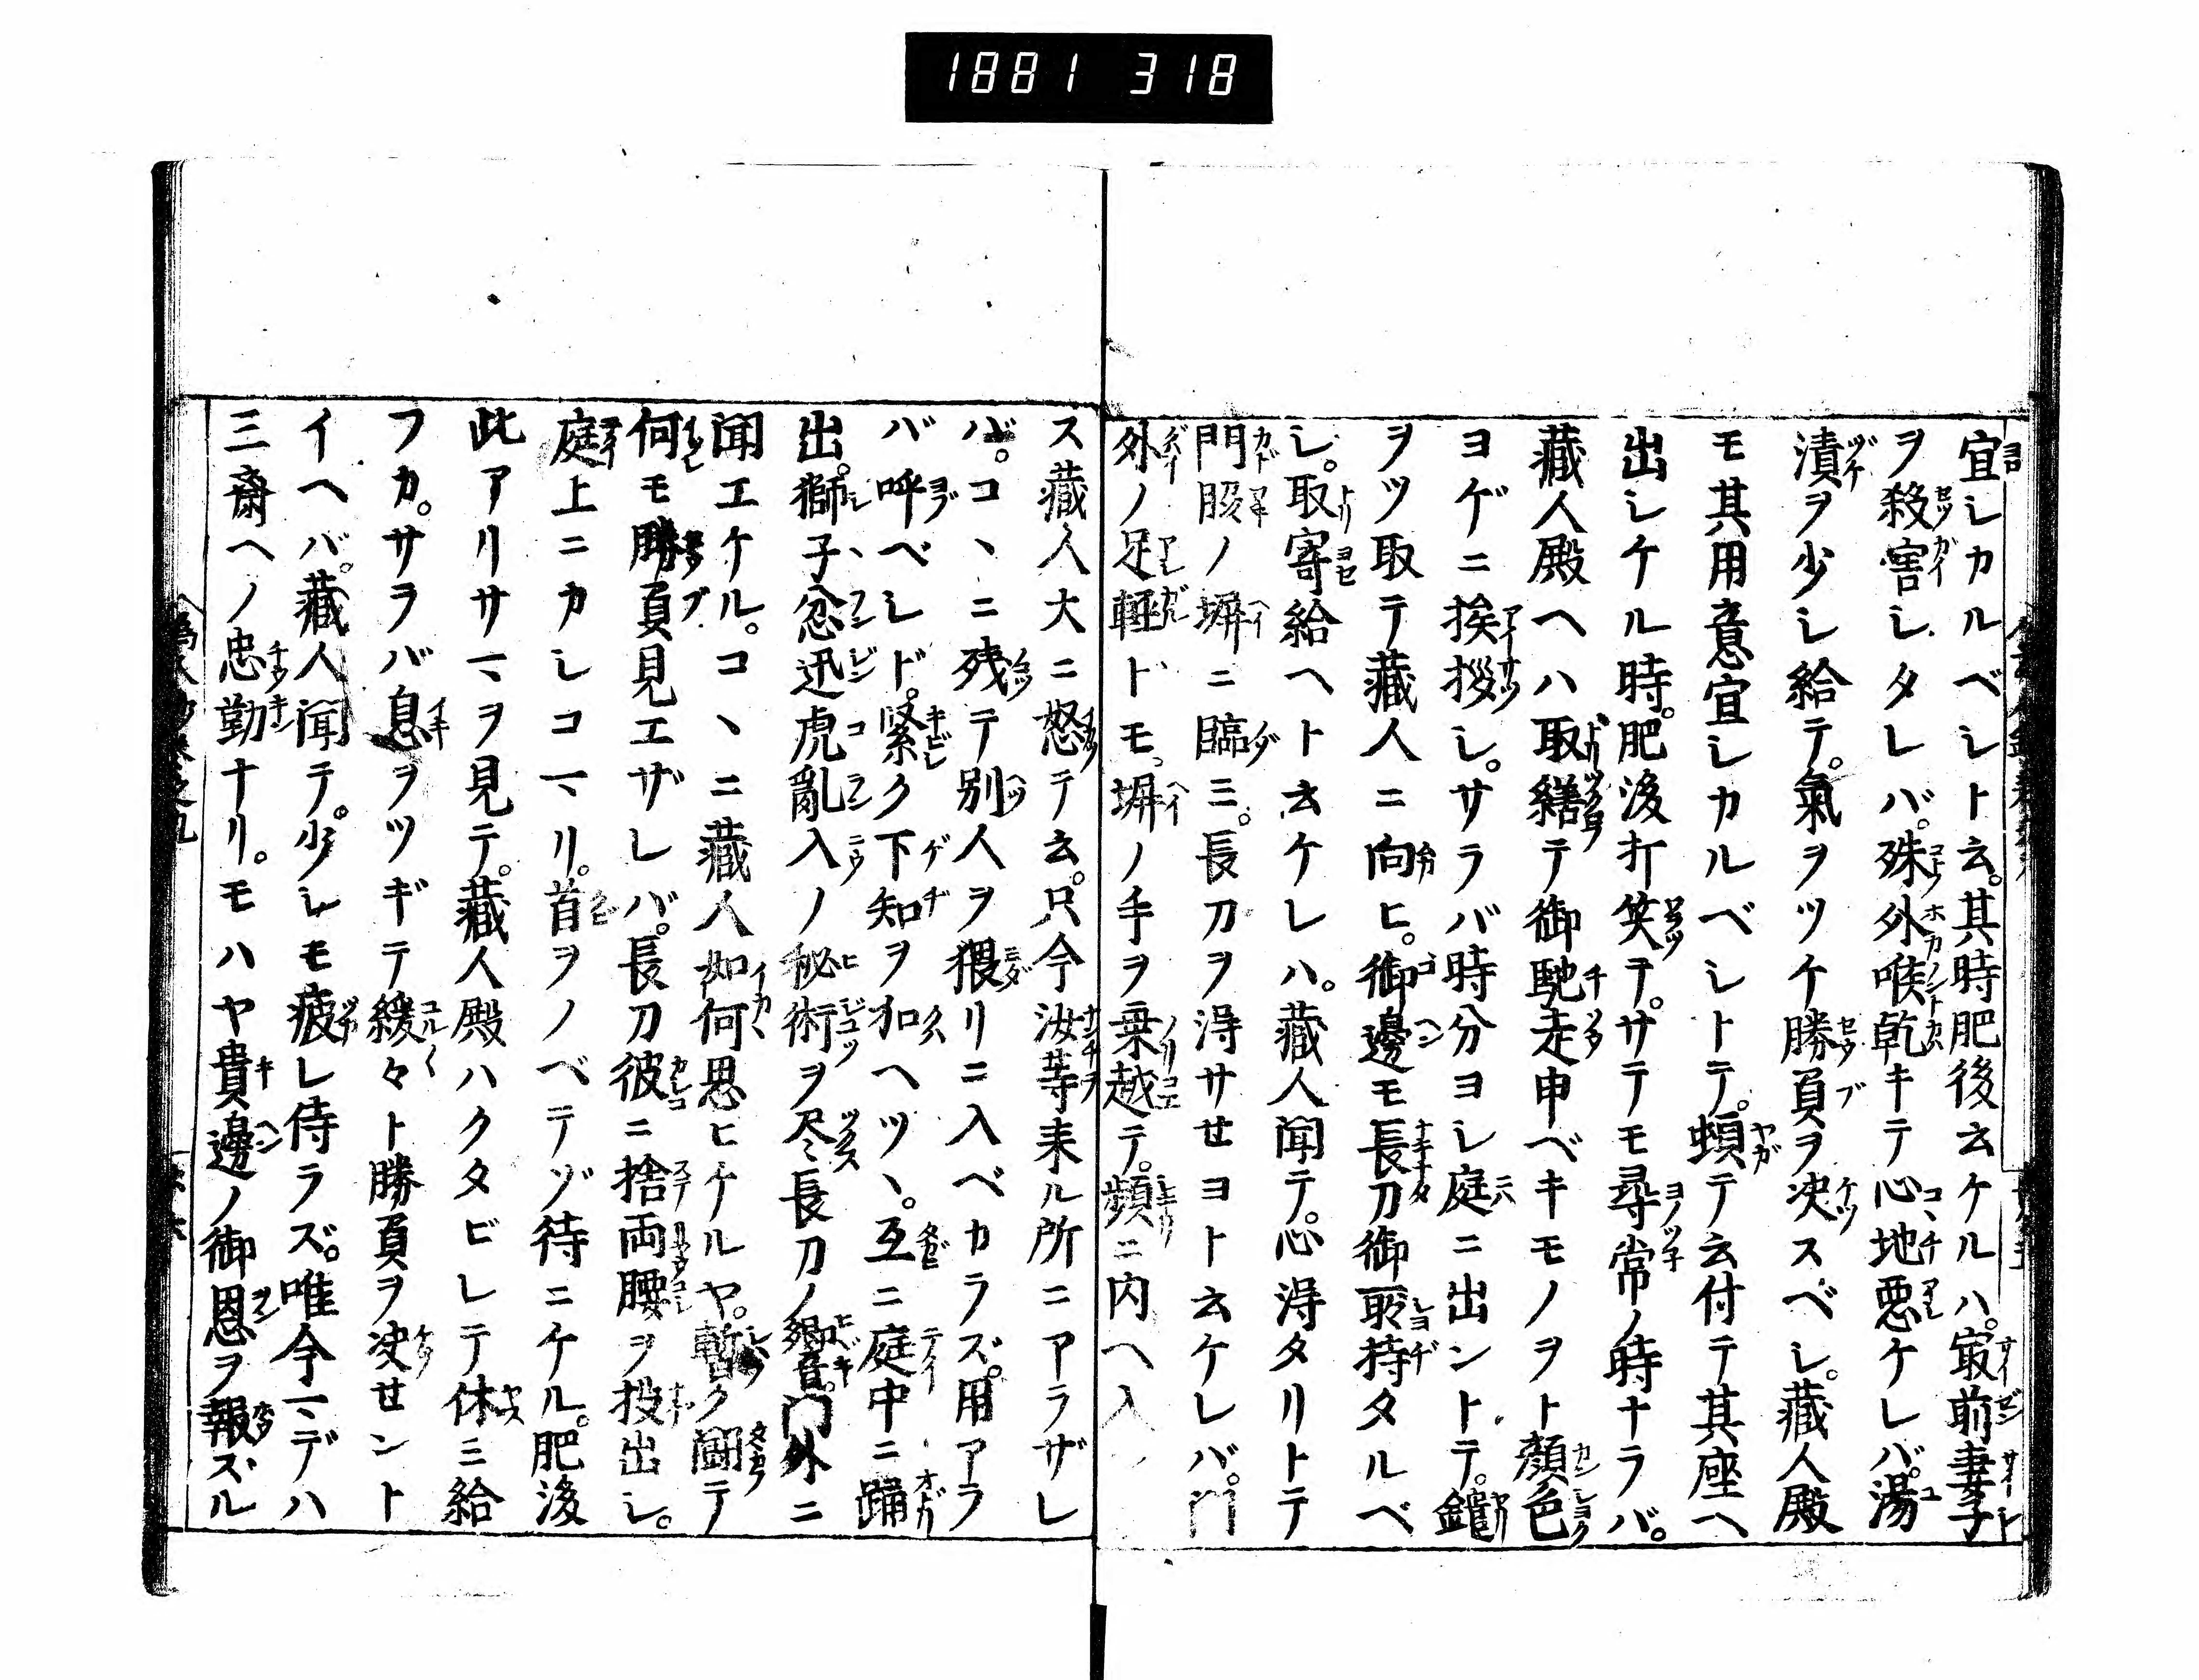 1881 318
宜シカルベシト云。其時肥後云ケルハ。㝡前妻子
ヲ殺害シタレバ。殊外喉乾キテ心地悪ケレバ。湯
漬ヲ少シ給テ。氣ヲツケ勝負ヲ决スベシ。藏人殿
モ其用意宜シカルベシトテ。頓テ云付テ其座ヘ
出シケル時。肥後打笑テ。サテモ尋常ノ時ナラバ。
藏人殿ヘハ取繕テ御馳走申ベキモノヲト顔色
ヨゲニ挨拶シ。サラバ時分ヨシ庭ニ出ントテ。鑓
ヲツ取テ藏人ニ向ヒ。御邊モ長刀御所持タルベ
シ。取寄給ヘト云ケレハ。藏人聞テ。心得タリトテ
門脇ノ塀ニ臨ミ。長刀ヲ得サセヨト云ケレバ。門
外ノ足輕ドモ。塀ノ手ヲ乗越テ。頻ニ内ヘ入
ス藏人大ニ怒テ云。只今汝等来ル所ニアラザレ
バ。コヽニ残テ別人ヲ猥リニ入ベカラズ。用アラ
バ呼ベシト。緊ク下知ヲ加ヘツヽ。互ニ庭中ニ踊
出。獅子忿迅虎亂入ノ秘術ヲ尽シ長刀ノ響。門外ニ
聞エケル。コヽニ藏人如何思ヒケルヤ。暫ク闘テ
何モ勝負見エザレバ。長刀彼ニ捨両腰ヲ投出シ。
庭上ニカシコマリ。首ヲノベテゾ待ニケル。肥後
此アリサマヲ見テ。藏人殿ハクタビレテ休ミ給
フカ。サラバ息ヲツギテ緩々ト勝負ヲ决セント
イヘバ。藏人聞テ。少シモ疲レ侍ラズ。唯今マデハ
三齋ヘノ忠勤ナリ。モハヤ貴邊ノ御恩ヲ報ズル